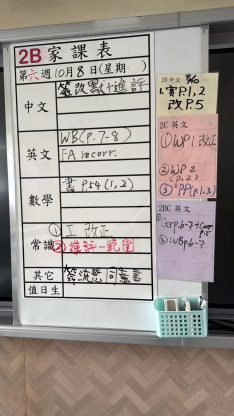 2B 家課表
第六週10月8日(星期 )
中文
簽改默+進評
英文
WB(p.7-8)
FA recorr.
數學
書P14(1,2)
常識
① 工 改正
② 進評一範圍
其它
值日生
2B 中文 8/10
1.書P.1,2
改P.5
2C 英文
① WP1 改正
② WP2
(p.2)
③ PP(p.1,2)
2BC 英文
② WBp.6-7